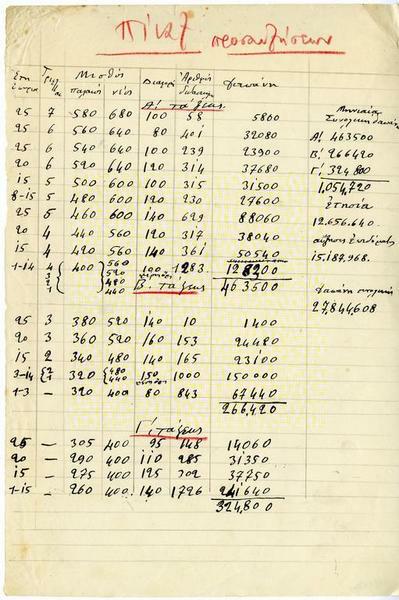 Πίναξ προσαυξήσεων
Έτη Τριετ. Μισθός Διαφορά Αριθμός Δαπάνη
παλαιός νέος
Α! τάξεως
25 7 580 680 100 58 5800
25 6 560 640 80 401 32080
25 6 540 640 100 239 23900
20 6 520 640 120 314 37680
15 5 500 600 100 315 31500
8-15 5 480 600 120 230 27600
25 5 460 600 140 629 88060
20 4 440 560 120 317 38040
15 4 420 560 140 361 50540
1-14 4 3 2 1 400 560 520 480 440 100 1283 128200
463500
Β. τάξεως
25 3 380 520 140 10 1400
20 3 360 520 160 153 24480
15 2 340 480 140 165 23100
3-14 2 1 320 480 440 150 1000 150000
1-3 — 320 400 80 843 67440
266,420
Γ. τάξεως
25 — 305 400 95 148 14060
20 — 290 400 110 285 31350
15 — 275 400 125 302 37750
1-15 — 260 400 140 1726 241640
324,800
Μηνιαία
Συνολική δαπάνη
Α! 463500
Β! 266420
Γ! 324800
1,054,720
Ετησία
12.656.640
αύξησις
15.187.968.
Δαπάνη συνολική
27,844,608